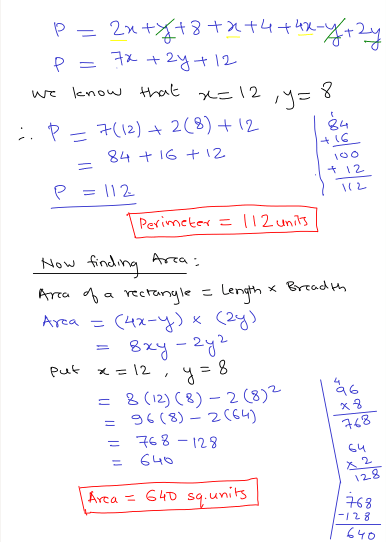 P = 2x+y+8+x+4+4x-y+2y
P = 7x + 2y + 12
we know that x=12 , y= 8
∴ P = 7(12) + 2(8) + 12
= 84 + 16 + 12
P = 112
1
84
+16
100
+ 12
112
Perimeter = 112 units
Now finding Area :
Area of a rectangle = length × Breadth
Area = (4x-y) × (2y)
= 8xy - 2y²
Put x = 12 , y = 8
= 8 (12) (8) - 2 (8)²
= 96 (8) - 2 (64)
= 768 - 128
= 640
Area = 640 sq.units
4
96
× 8
768
64
× 2
128
768
-128
640